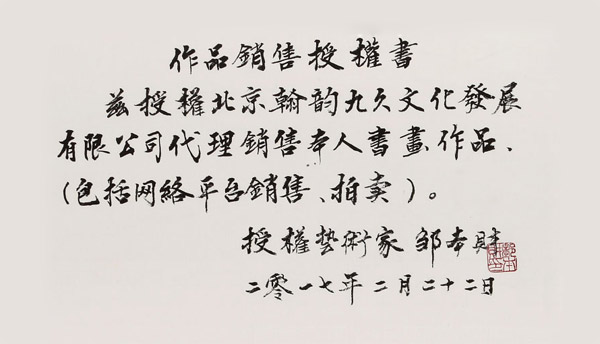 作品銷售授權書
茲授權北京翰韵九久文化發展
有限公司代理銷售本人書畫作品、
(包括网络平台銷售、拍卖)。
授權藝術家 邹本財
二零一七年二月二十二日